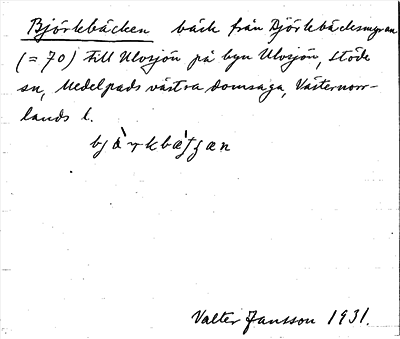 Björkbäcken bäck från Björkbäcksmyran
(= 70) till Ulvsjön på byn Ulvsjön, Stöde
sn, Medelpads västra domsaga, Västernorr-
lands l.
Valter Jansson 1931.